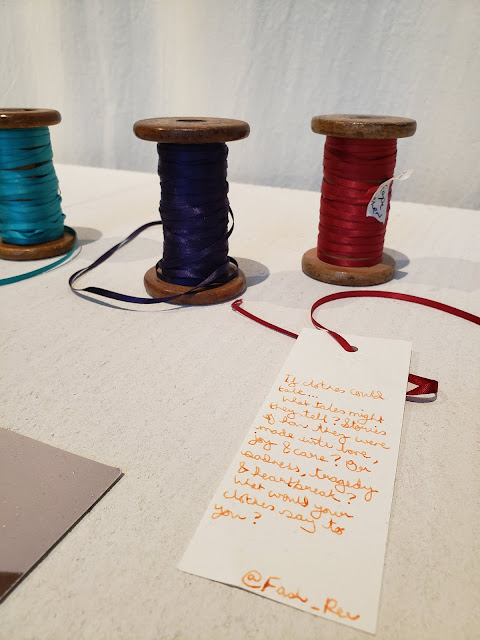 If clothes could
talk...
What tales might
they tell? Stories
of how they were
made with love,
joy & care? Or
sadness, tragedy
& heartbreak?
What would your
clothes say to
you?
@Fash_Rev